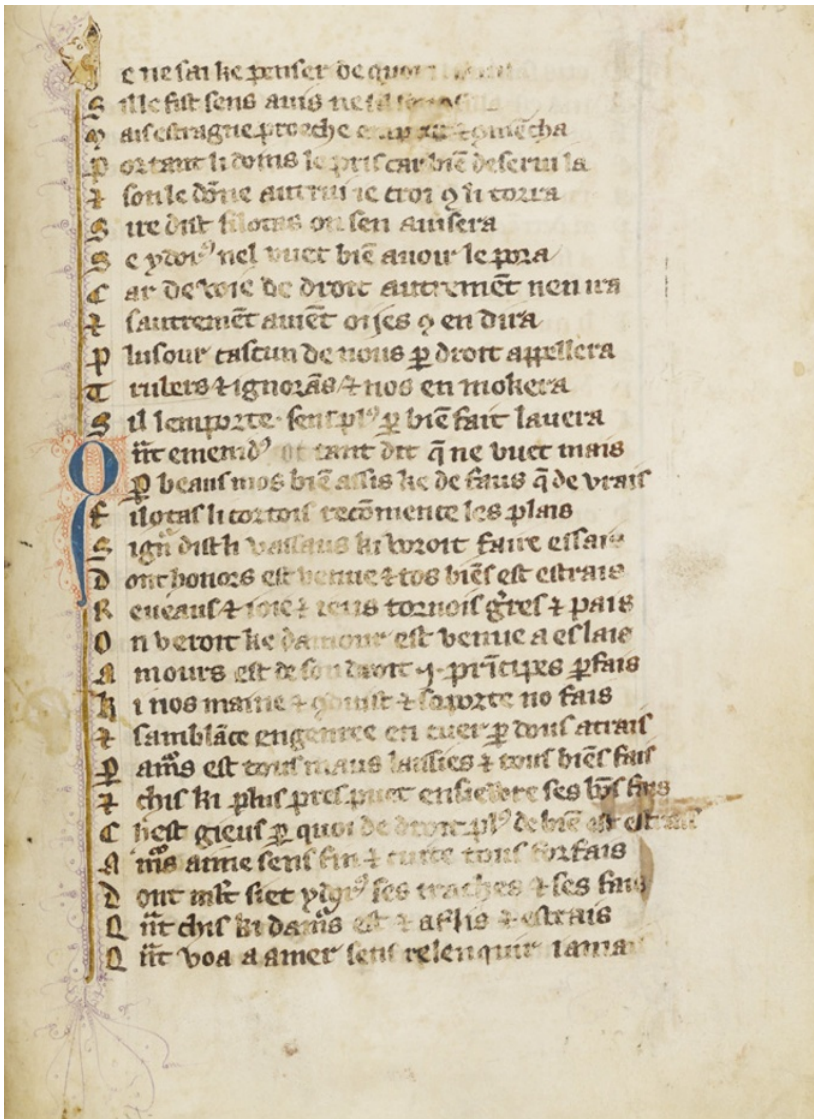 e ne sai ke penser de quoi
S ille fist sens auis ne
M ais estragne proeche
P or tant li doins le pris car biē deserui la
⁊ son le dōne autrui ie croi ꝯ li torra
S ire dist filotas on sen auisera
S e ydorꝰ nel vuet biē auoir le pora
C ar de voie de droit autremēt nen ira
⁊ sautremēt auiēt oijes ꝯ en dira
P lusour cascun de nous ꝑ droit appellera
T rulers ⁊ ignorās ⁊ nos en mokera
S il lemporte sens plꝰ ꝑ biē fait lauera
Q ūt emenidꝰ ot tant dit q̄ ne vuet mais
ꝑ beaus mos biē assis ke de faus q̄ de vrais
F ilotas li cortois recōmente les plais
S ign̄ dist li vassaus ki voroit faire essais
D ont honors est venue ⁊ tos biēs est estrais
R eueaus ⁊ ioie ⁊ tornois ⁊ pais
O n veroit ke damour est venue a eslais
A mours est de son droit .j. prīcipes ꝑfais
K i nos maine ⁊ ꝯduist ⁊ no fais
⁊ samblāce engenree en cuer ꝑ dous atrais
P amͬs est tous maus laissies ⁊ tous biēs fais
⁊ chis ki plus pres puet ensieure ses bōs fais
C hest gieus ꝑ quoi de droit plꝰ de biē est estrais
A mͬs anie sens fin ⁊ cuite tous forfais
D ont siet ses ⁊ ses fais
Q ūt chis ki damͬs est ⁊ ⁊ estrais
Q ūt voa a amer sens relenquir iamais